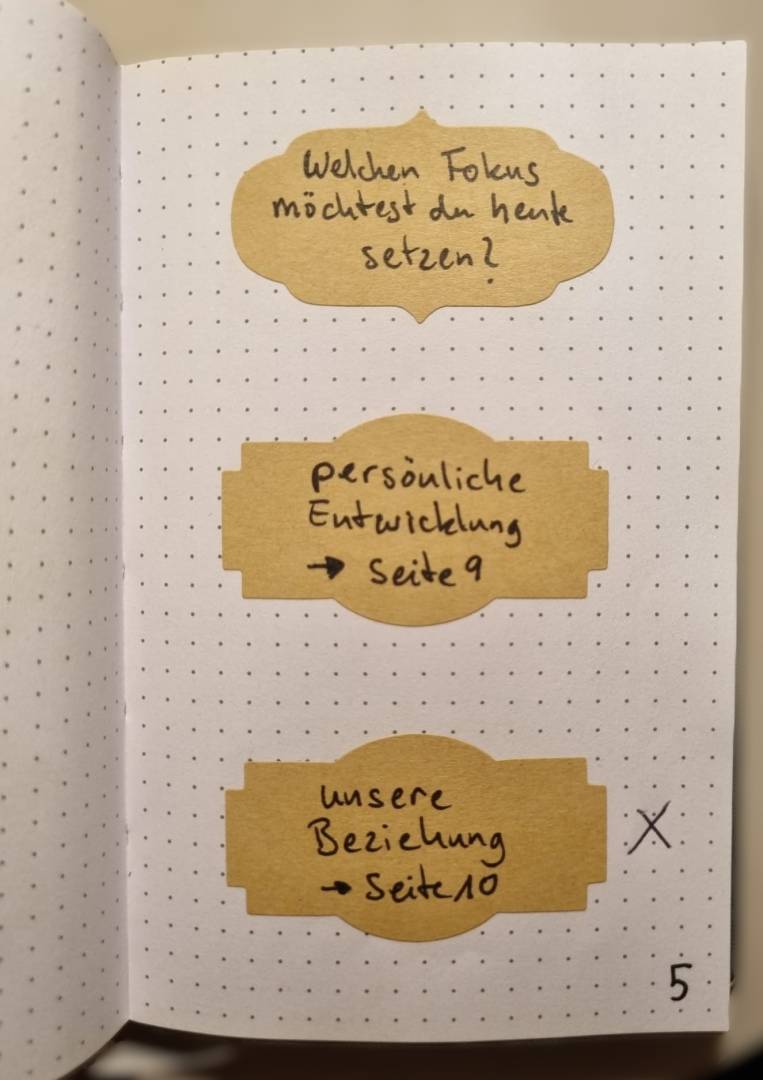 Welchen Fokus
möchtest du heute
setzen?
persönliche
Entwicklung
→ Seite 9
unsere
Beziehung
→ Seite 10
X
5